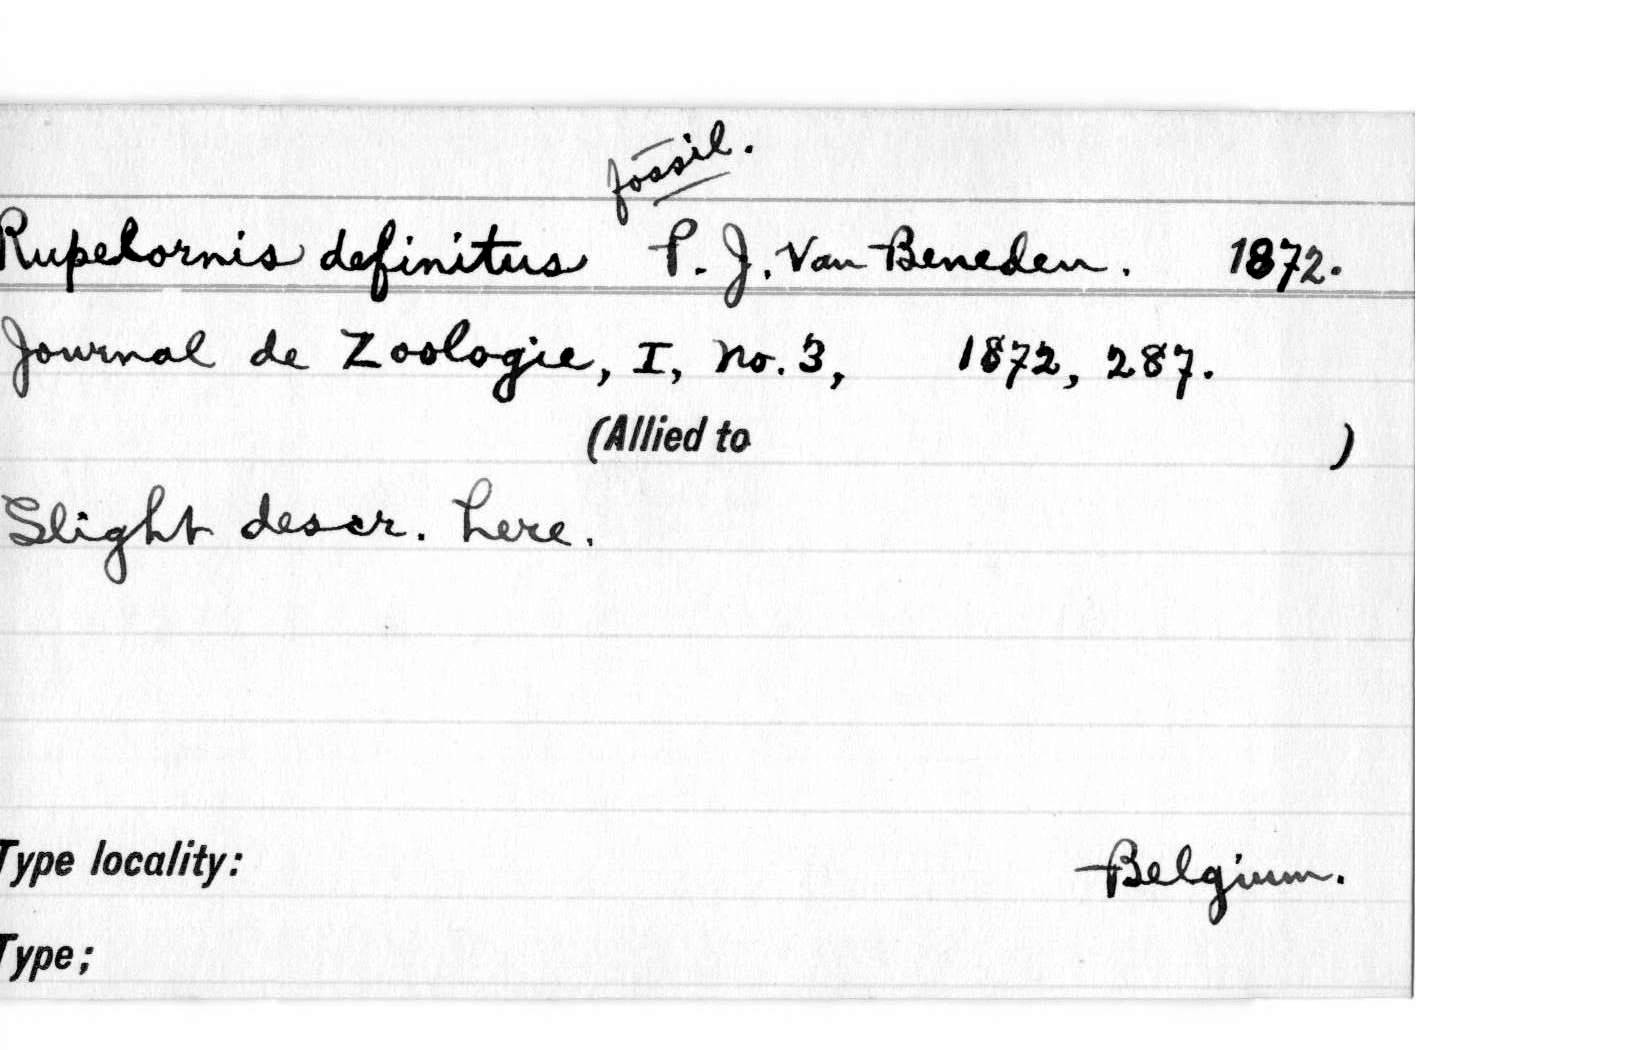 fossil.
Rupelornis definitus P. J. Van Beneden. 1872.
Journal de Zoologie, I, no. 3, 1872, 287.
(Allied to )
Slight descr. here.
Type locality: Belgium.
Type;